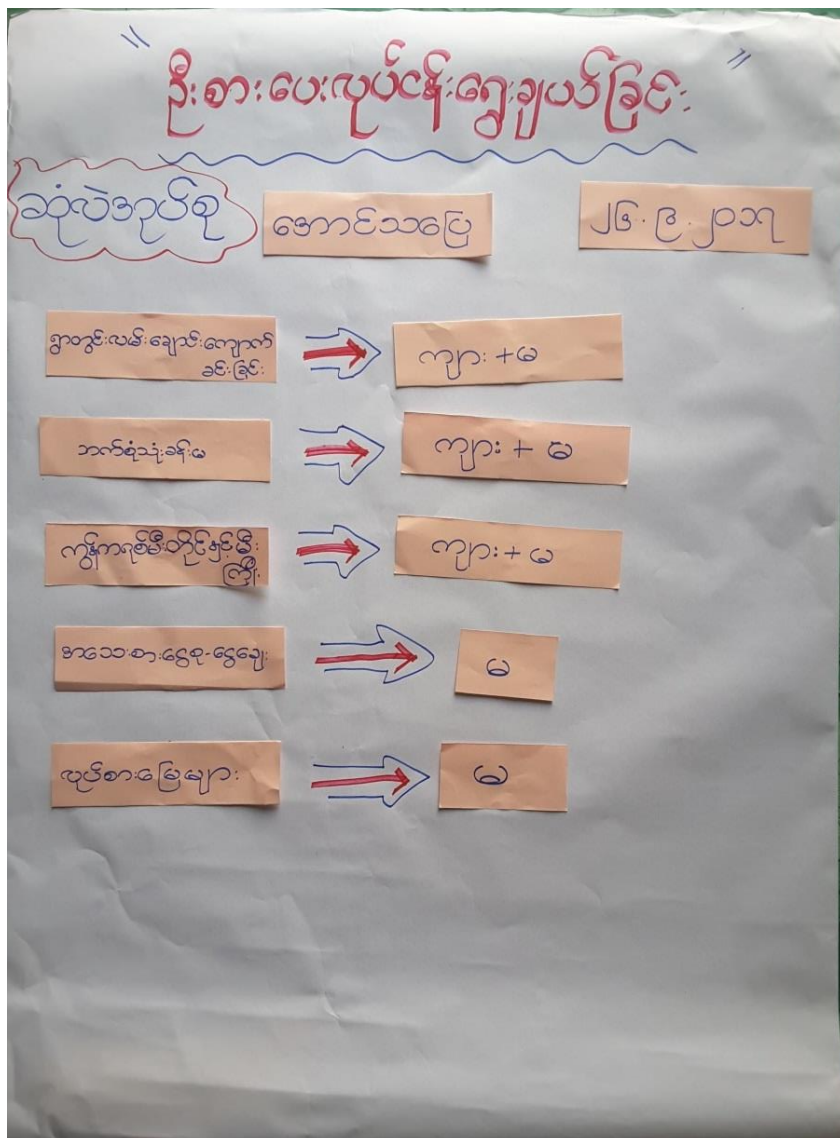 " ဦးစားပေးလုပ်ငန်းရွေးချယ်ခြင်း "
ဆုံလဲအုပ်စု အောင်သပြေ ၂၆.၉.၂၀၁၇
ရွာတွင်းလမ်းချောင်းကျောက်
ခင်းခြင်း → ကျား + မ
ဘက်စုံသုံးခန်းမ → ကျား + မ
ကွန်ကရစ်မီးတိုင်နှင့်မီး
ကြိုး → ကျား + မ
အသေးစားငွေစု-ငွေချေး → မ
လုပ်စားမြေများ → မ